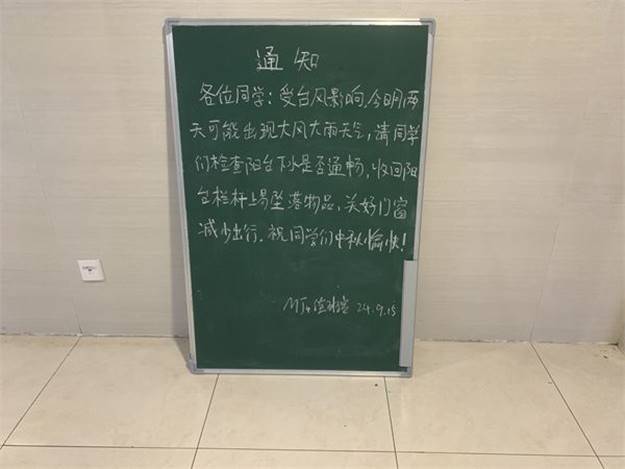 通知
各位同学：受台风影响，今明两
天可能出现大风大雨天气，请同学
们检查阳台下水是否通畅，收回阳
台栏杆上易坠落物品，关好门窗
减少出行。祝同学们中秋愉快！
24.9.15